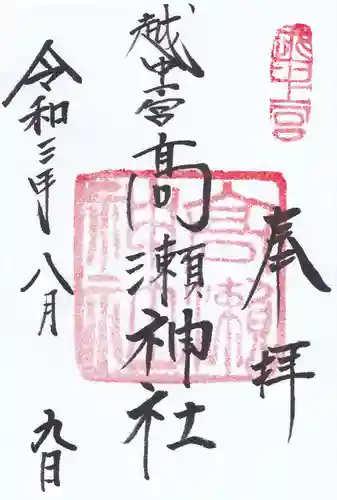 奉拝
越中宮
越中一宮 高瀬神社
高瀬神社
令和三年 八月 九日